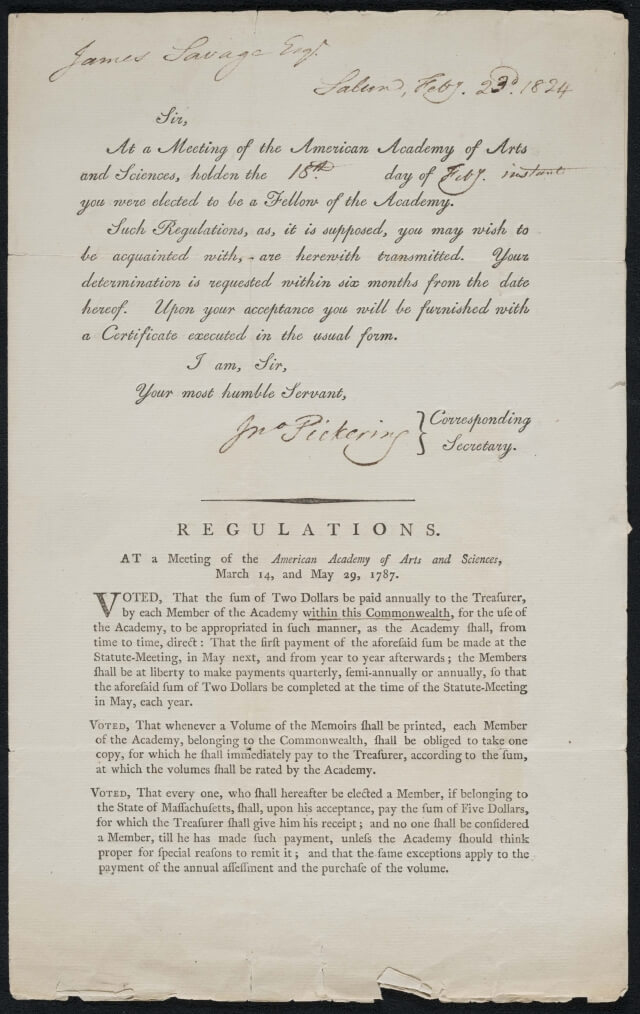 James Savage Esqr.
Salem, Feby. 23d. 1824
Sir,
At a Meeting of the American Academy of Arts
and Sciences, holden the 18th. day of Feby. instant
you were elected to be a Fellow of the Academy.
Such Regulations, as, it is supposed, you may wish to
be acquainted with, are herewith transmitted. Your
determination is requested within six months from the date
hereof. Upon your acceptance you will be furnished with
a Certificate executed in the usual form.
I am, Sir,
Your most humble Servant,
Jno Pickering } Corresponding
Secretary.
REGULATIONS.
AT a Meeting of the American Academy of Arts and Sciences,
March 14, and May 29, 1787.
VOTED, That the ſum of Two Dollars be paid annually to the Treaſurer,
by each Member of the Academy within this Commonwealth, for the uſe of
the Academy, to be appropriated in ſuch manner, as the Academy ſhall, from
time to time, direct: That the firſt payment of the aforeſaid ſum be made at the
Statute-Meeting, in May next, and from year to year afterwards; the Members
ſhall be at liberty to make payments quarterly, ſemi-annually or annually, ſo that
the aforeſaid ſum of Two Dollars be completed at the time of the Statute-Meeting
in May, each year.
VOTED, That whenever a Volume of the Memoirs ſhall be printed, each Member
of the Academy, belonging to the Commonwealth, ſhall be obliged to take one
copy, for which he ſhall immediately pay to the Treaſurer, according to the ſum,
at which the volumes ſhall be rated by the Academy.
VOTED, That every one, who ſhall hereafter be elected a Member, if belonging to
the State of Maſſachuſetts, ſhall, upon his acceptance, pay the ſum of Five Dollars,
for which the Treaſurer ſhall give him his receipt; and no one ſhall be conſidered
a Member, till he has made ſuch payment, unleſs the Academy ſhould think
proper for ſpecial reaſons to remit it; and that the ſame exceptions apply to the
payment of the annual aſſeſſment and the purchaſe of the volume.